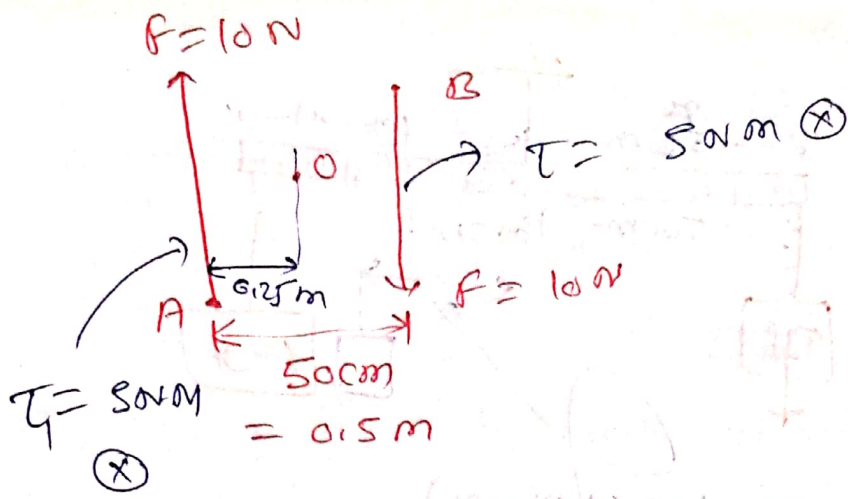 F = 10 N
B
O
τ = 5 N m ⊗
0.25 m
A
F = 10 N
50 cm
= 0.5 m
τ = 5 N M
⊗